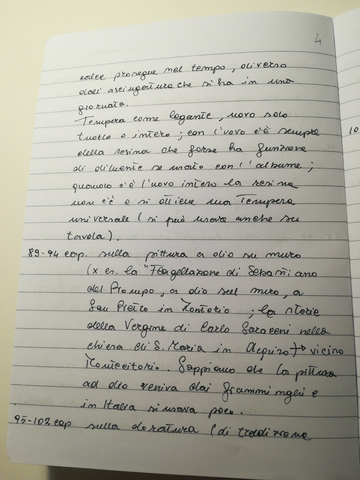 4
calce prosegue nel tempo, diverso
dall'asciugatura che si ha in una
giornata.
Tempera come legante, uovo solo
tuorlo o intero; con l'uovo c'è sempre
della resina che forse ha funzione
di diluente se usato con l'albume;
quando c'è l'uovo intero la resina
non c'è e si ottiene una Tempera
universale (si può usare anche su
tavola).
89-94 cap. sulla pittura a olio su muro
(x es. la "Flagellazione di Sebastiano
del Piombo, a olio sul muro, a
San Pietro in Montorio; le storie
della Vergine di Carlo Saraceni nella
chiesa di S. Maria in Aquiro) vicino
Montecitorio. Sappiamo che la pittura
ad olio veniva dai fiamminghi e
in Italia si usava poco.
95-102 cap sulla doratura (di tradizione
10